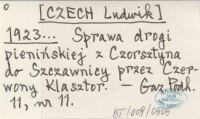 [CZECH Ludwik]
1923... Sprawa drogi
pienińskiej z Czorsztyna
do Szczawnicy przez Czer-
wony Klasztor. — Gaz. Podh.
11, nr 11.